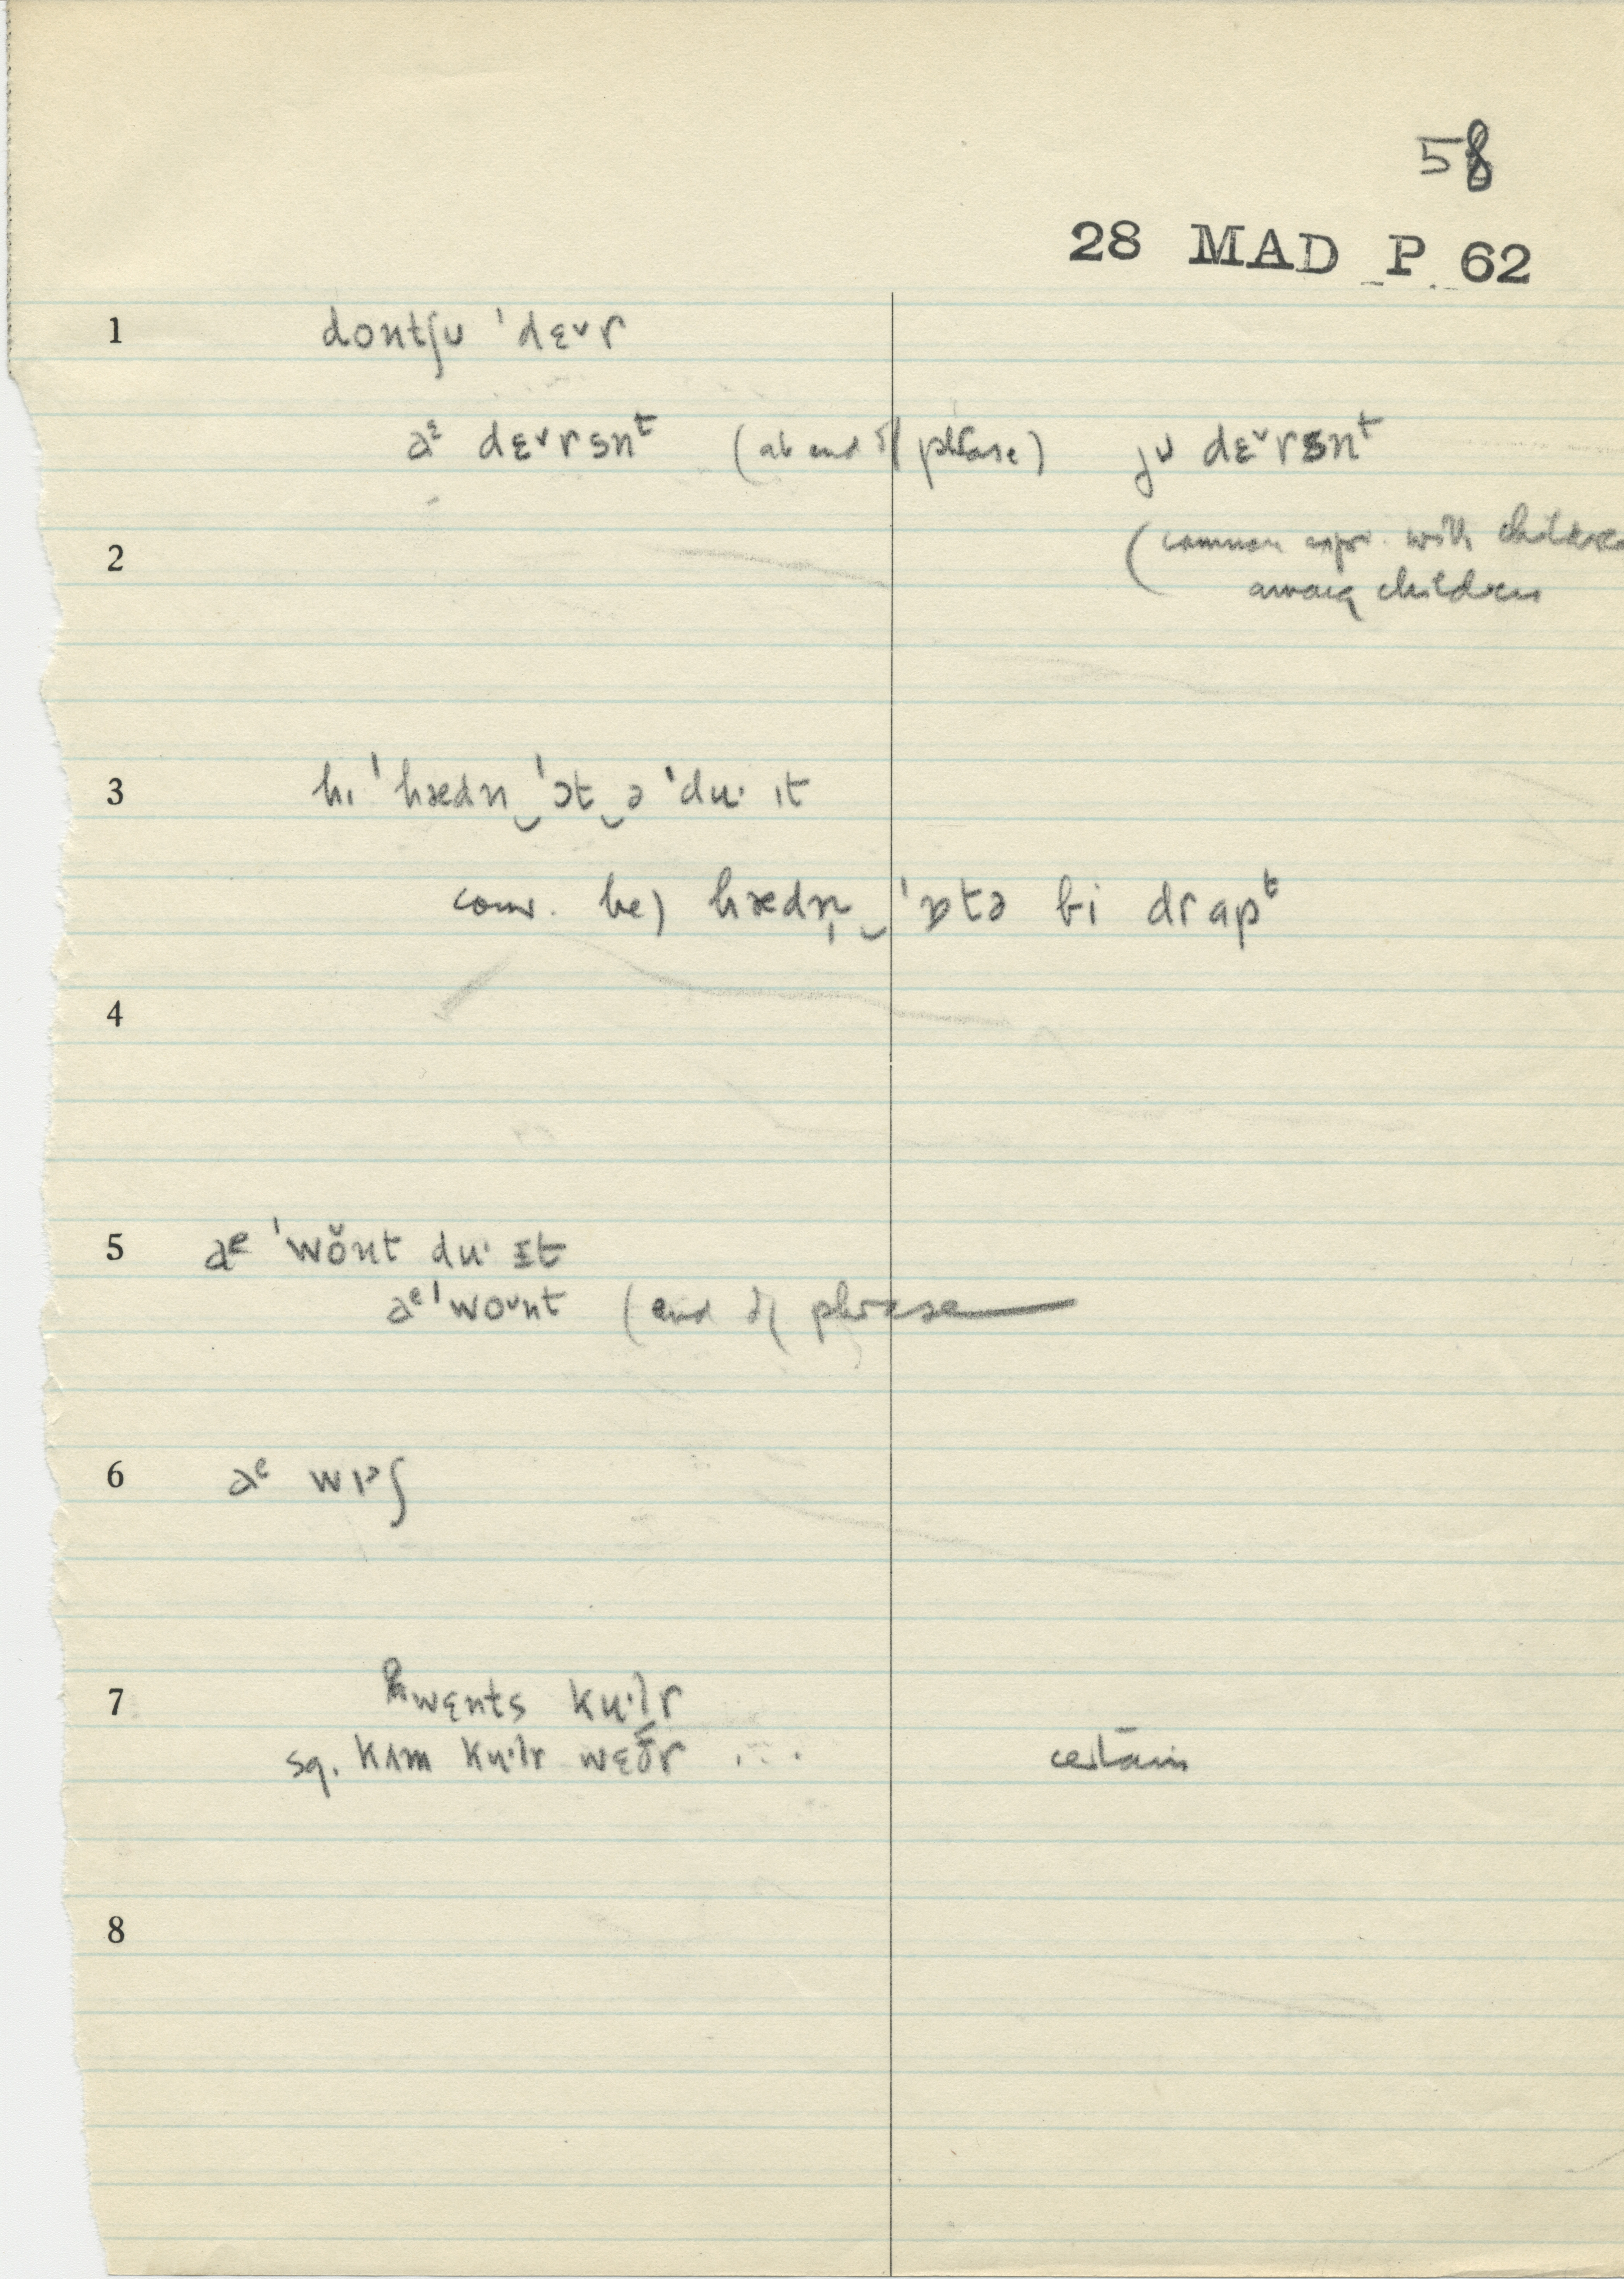 58
28 MAD P 62
1 dontʃʊ ˈdɛ˅r
aᵋ dɛ˅rsnᵗ (at end of phrase) jʊ dɛ˅rsnᵗ
2 (common expr. with children
among children
3 hɪ ˈhædn‿ˈɔt‿ə ˈdu· ɪt
conv. he) hædn̩‿ˈɒtə bi drapᵗ
4
5 aᵉ ˈwŏnt du· ɪt
aᵉˈwo˅nt (end of phrase
6 aᵉ wɪᵊʃ
7 hwɛnts ku·lr
sq. kʌm ku·lr wɛðr . . . certain
8